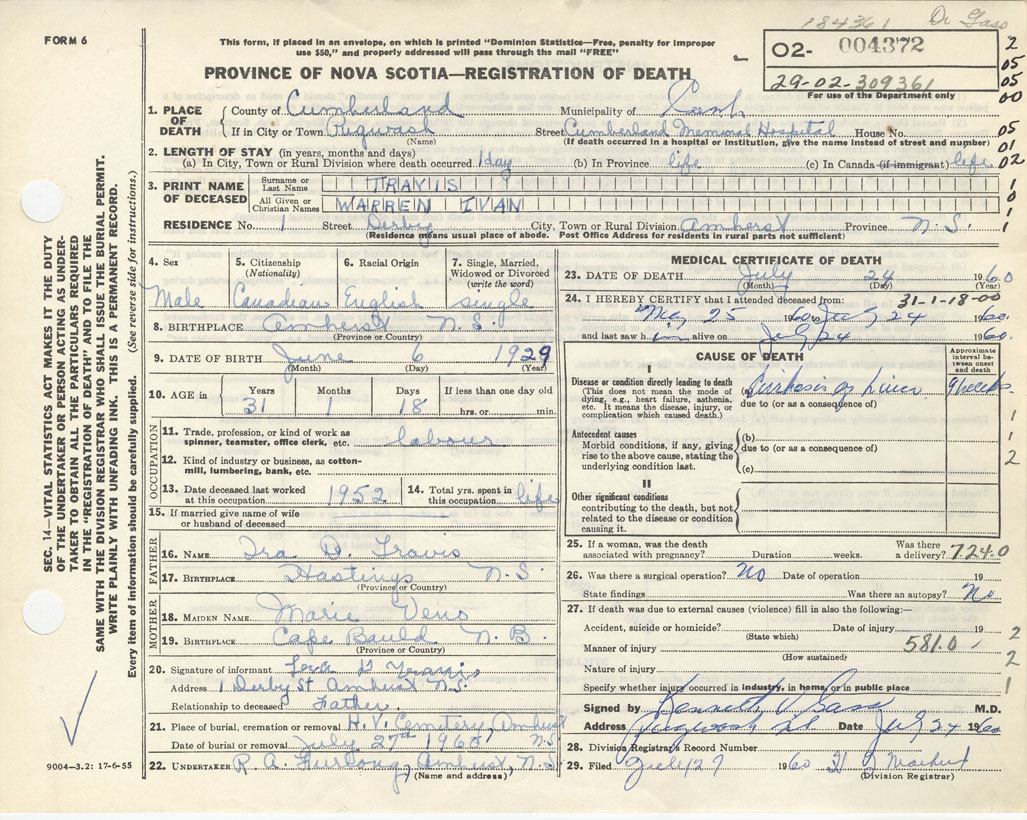 184361 Dr Gass
FORM 6
This form, if placed in an envelope, on which is printed "Dominion Statistics—Free, penalty for improper
use $50," and properly addressed will pass through the mail "FREE"
02- 004372
29-02-309361
For use of the Department only
2
05
05
00
PROVINCE OF NOVA SCOTIA—REGISTRATION OF DEATH
1. PLACE OF DEATH
County of Cumberland Municipality of Cumb.
If in City or Town Pugwash Street Cumberland Memorial Hospital House No.
(Name) (If death occurred in a hospital or institution, give the name instead of street and number)
05
01
02
2. LENGTH OF STAY (in years, months and days)
(a) In City, Town or Rural Division where death occurred 1 day (b) In Province life (c) In Canada (if immigrant) life
3. PRINT NAME OF DECEASED
Surname or Last Name TRAVIS
All Given or Christian Names WARREN IVAN
1
0
1
1
RESIDENCE No. 1 Street Derby City, Town or Rural Division Amherst Province N.S.
(Residence means usual place of abode. Post Office Address for residents in rural parts not sufficient)
4. Sex
Male
5. Citizenship
(Nationality)
Canadian
6. Racial Origin
English
7. Single, Married,
Widowed or Divorced
(write the word)
single
8. BIRTHPLACE Amherst N.S.
(Province or Country)
9. DATE OF BIRTH June 6 1929
(Month) (Day) (Year)
10. AGE in
Years 31
Months 1
Days 18
If less than one day old
hrs. or min.
OCCUPATION
11. Trade, profession, or kind of work as
spinner, teamster, office clerk, etc. labour
12. Kind of industry or business, as cotton-
mill, lumbering, bank, etc.
13. Date deceased last worked
at this occupation 1952
14. Total yrs. spent in
this occupation life
15. If married give name of wife
or husband of deceased
FATHER
16. NAME Ira D. Travis
17. BIRTHPLACE Hastings N.S.
(Province or Country)
MOTHER
18. MAIDEN NAME Marie
19. BIRTHPLACE Cape Bauld N.B.
(Province or Country)
20. Signature of informant
Address 1 Derby St Amherst N.S.
Relationship to deceased Father
21. Place of burial, cremation or removal H.V. Cemetery, Amherst
Date of burial or removal July 27th 1960 N.S.
22. UNDERTAKER R. A. Furlong, Amherst, N.S.
(Name and address)
MEDICAL CERTIFICATE OF DEATH
23. DATE OF DEATH July 24 1960
(Month) (Day)
24. I HEREBY CERTIFY that I attended deceased from: 31-1-18-00
May 25 1960 to July 24 1960
and last saw him alive on July 24 1960
CAUSE OF DEATH
Approximate
interval be-
tween onset
and death
I
Disease or condition directly leading to death
(This does not mean the mode of
dying, e.g., heart failure, asthenia,
etc. It means the disease, injury, or
complication which caused death.)
(a) Cirrhosis of Liver 9 weeks
due to (or as a consequence of)
Antecedent causes
Morbid conditions, if any, giving
rise to the above cause, stating the
underlying condition last.
(b)
due to (or as a consequence of)
(c)
1
1
2
II
Other significant conditions
contributing to the death, but not
related to the disease or condition
causing it.
25. If a woman, was the death
associated with pregnancy? Duration weeks. Was there
a delivery? 724.0
26. Was there a surgical operation? No Date of operation 19
State findings Was there an autopsy? No
27. If death was due to external causes (violence) fill in also the following:—
Accident, suicide or homicide? Date of injury 19
(State which)
Manner of injury 581.0
(How sustained)
Nature of injury
Specify whether injury occurred in industry, in home, or in public place
2
2
1
Signed by Kenneth V Gass M.D.
Address Pugwash N.S. Date July 24 1960
28. Division Registrar's Record Number
29. Filed July 27 1960
(Division Registrar)
SEC. 14—VITAL STATISTICS ACT MAKES IT THE DUTY
OF THE UNDERTAKER OR PERSON ACTING AS UNDER-
TAKER TO OBTAIN ALL THE PARTICULARS REQUIRED
IN THE "REGISTRATION OF DEATH" AND TO FILE THE
SAME WITH THE DIVISION REGISTRAR WHO SHALL ISSUE THE BURIAL PERMIT.
WRITE PLAINLY WITH UNFADING INK. THIS IS A PERMANENT RECORD.
Every item of information should be carefully supplied. (See reverse side for instructions.)
9004-3.2: 17-6-55